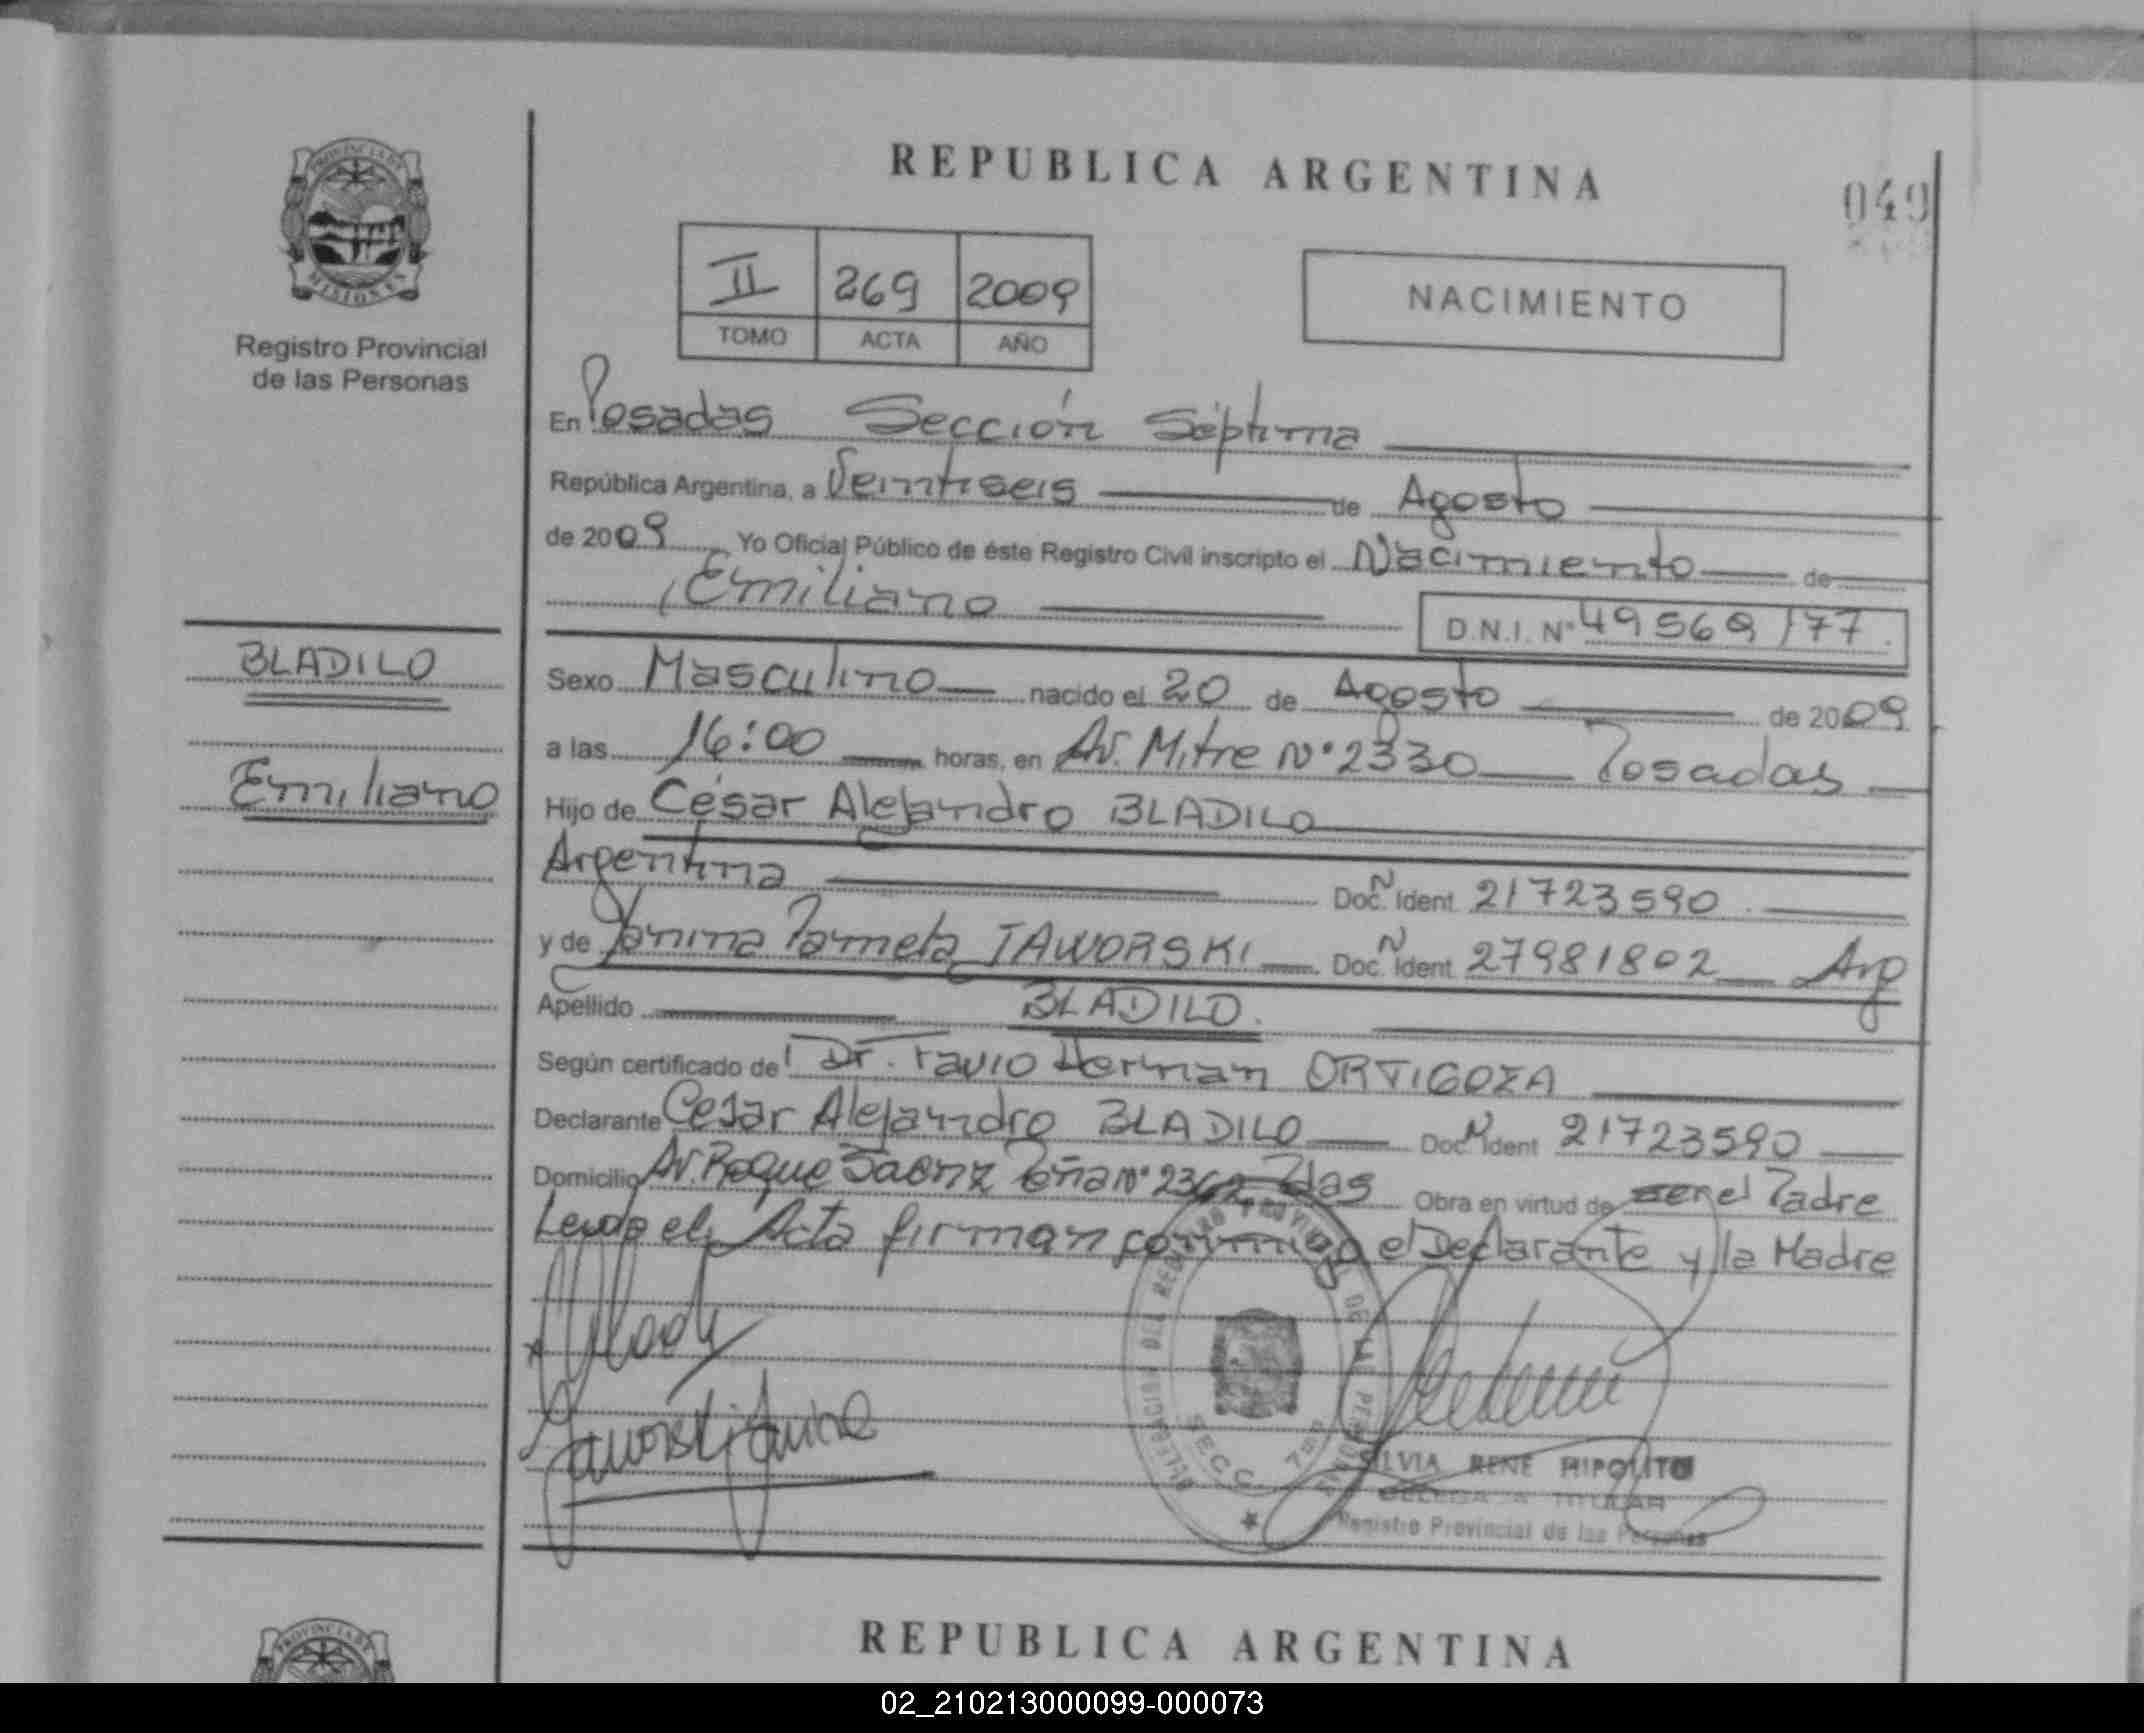 PROVINCIA DE
MISIONES
Registro Provincial
de las Personas
BLADILO
Emiliano
REPUBLICA ARGENTINA
049
II 269 2009
TOMO ACTA AÑO
NACIMIENTO
En Posadas Sección Séptima
República Argentina, a Veintiseis de Agosto
de 2009 Yo Oficial Público de éste Registro Civil inscripto el Nacimiento de
Emiliano
D.N.I. Nº 49569177
Sexo Masculino nacido el 20 de Agosto de 2009
a las 16:00 horas, en Av. Mitre Nº 2330 Posadas
Hijo de César Alejandro BLADILO
Argentina Doc. N Ident. 21723590
y de Yanina Pamela JAWORSKI Doc. N Ident. 27981802 Arg
Apellido BLADILO.
Según certificado de Dr. Favio Herman ORTIGOZA
Declarante Cesar Alejandro BLADILO Doc. N Ident 21723590
Domicilio Av. Roque Saenz Peña Nº 2362 Pdas Obra en virtud de ser el Padre
Leida el Acta firman conmigo el Declarante y la Madre
Jaworski Yanina
DELEGACION DEL REGISTRO PROVINCIAL DE LAS PERSONAS
SECC. 7ma
SILVIA RENE HIPOLITO
DELEGADA TITULAR
Registro Provincial de las Personas
PROVINCIA DE
REPUBLICA ARGENTINA
02_210213000099-000073